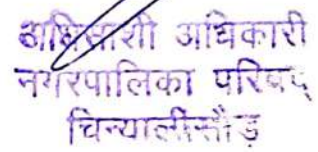 अधिशासी अधिकारी
नगरपालिका परिषद्
चिन्यालीसौड़